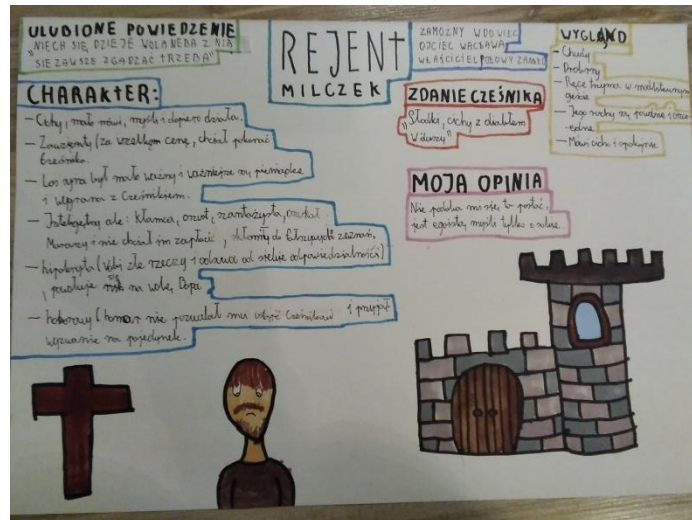 ULUBIONE POWIEDZENIE
"NIECH SIĘ DZIEJE WOLA NIEBA Z NIĄ
SIĘ ZAWSZE ZGADZAĆ TRZEBA"
REJENT
MILCZEK
ZAMOŻNY WDOWIEC
OJCIEC WACŁAWA
WŁAŚCICIEL POŁOWY ZAMKU
WYGLĄD
- Chudy
- Drobny
- Ręce trzyma w modlitewnym
geście
- Jego ruchy są powolne i
- Mówi cicho i spokojnie
CHARAKTER:
- Cichy, mało mówi, myśli i dopiero działa.
- Zawzięty (za wszelką cenę, chciał pokonać
Cześnika.
- Los syna był mało ważny i ważniejsze są pieniądze
i wygrana z Cześnikiem.
- Inteligentny ale: kłamca, oszust, szantażysta, oszukał
Murarzy i nie chciał im zapłacić, skłamał do fałszywych zeznań.
- hipokryta (robi złe rzeczy i odsuwa od siebie odpowiedzialność)
, powołuje się na wolę Boga
- honorowy (honor nie pozwalał mu Cześnikowi i przyjął
wyzwanie na pojedynek.
ZDANIE CZEŚNIKA
"Słodki, cichy z diabłem
w duszy"
MOJA OPINIA
Nie podoba mi się ta postać,
jest egoistą, myśli tylko o sobie.